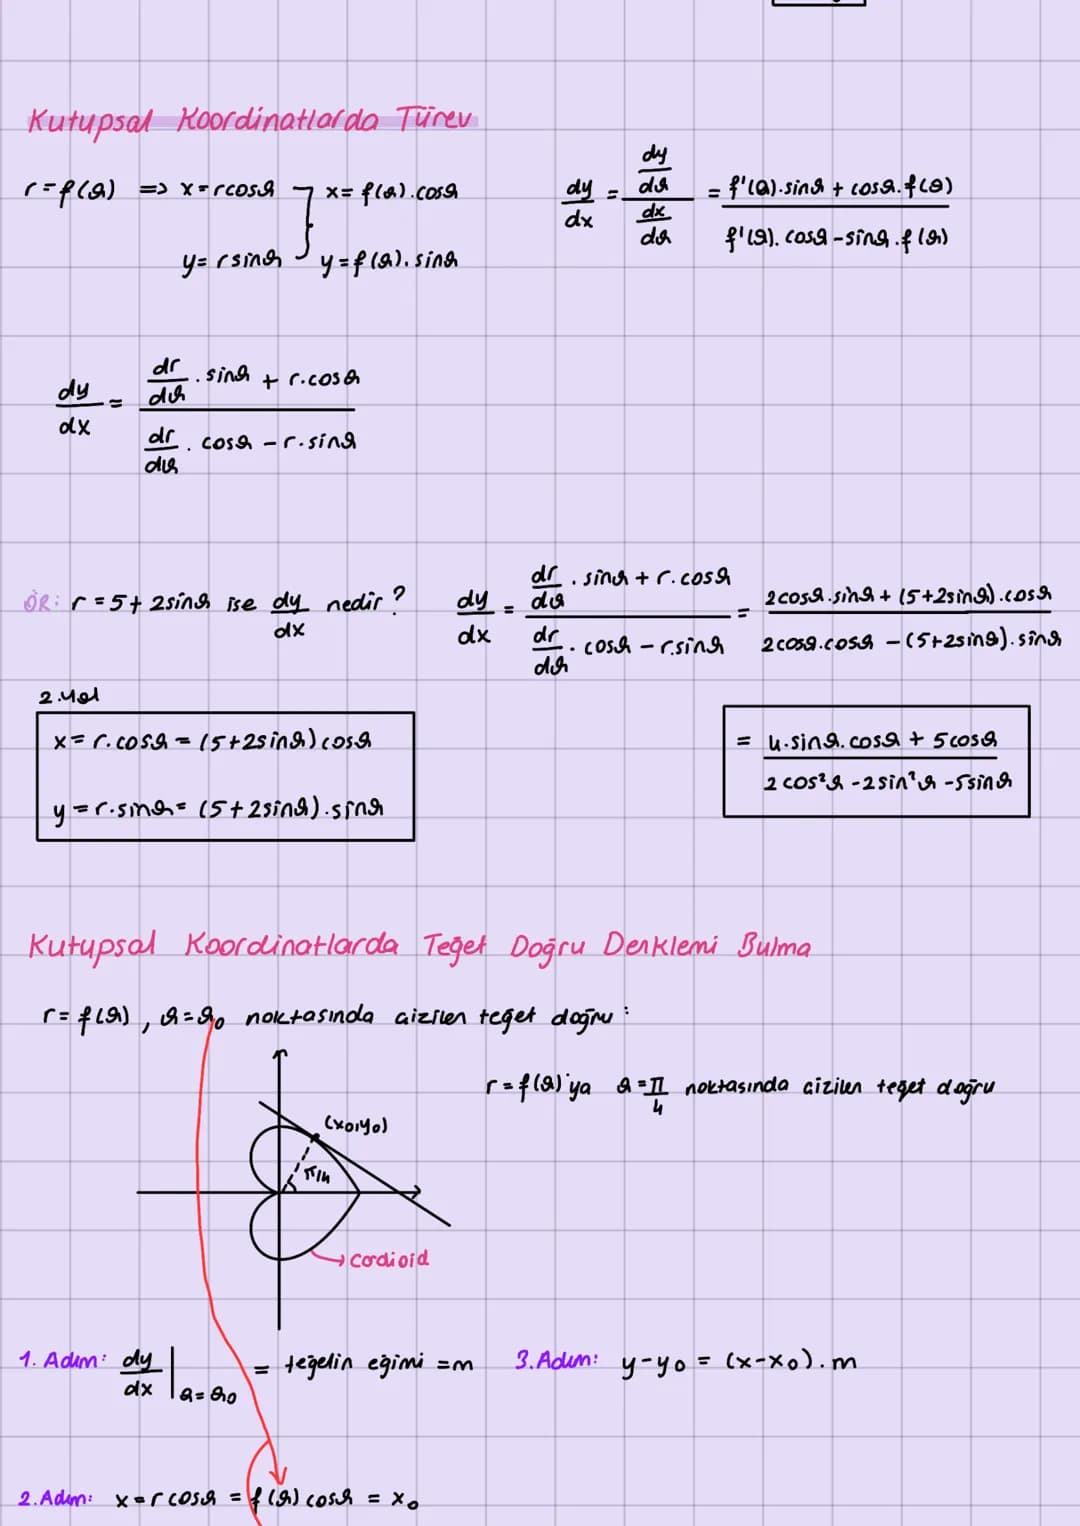 Kutupsal Koordinatlarda Türev
r=f(θ) => x=rcosθ   x=f(θ).cosθ
y=rsinθ   y=f(θ).sinθ
dy/dx = (dy/dθ)/(dx/dθ) = (f'(θ).sinθ + cosθ.f(θ))/(f'(θ).cosθ - sinθ.f(θ))
dy/dx = (dr/dθ . sinθ + r.cosθ)/(dr/dθ . cosθ - r.sinθ)
ÖR: r=5+2sinθ ise dy/dx nedir? dy/dx = (dr/dθ . sinθ + r.cosθ)/(dr/dθ . cosθ - r.sinθ) = (2cosθ.sinθ + (5+2sinθ).cosθ)/(2cosθ.cosθ - (5+2sinθ).sinθ)
2.Yol
x=r.cosθ = (5+2sinθ)cosθ
y=r.sinθ = (5+2sinθ).sinθ
= (4.sinθ.cosθ + 5cosθ)/(2cos²θ - 2sin²θ - 5sinθ)
Kutupsal Koordinatlarda Teğet Doğru Denklemi Bulma
r=f(θ), θ=θ₀ noktasında çizilen teğet doğru:
r=f(θ)'ya θ=π/4 noktasında çizilen teğet doğru
(x₀,y₀)
π/4
Cordioid
1. Adım: dy/dx |θ=θ₀ = teğetin eğimi =m
3.Adım: y-y₀ = (x-x₀).m
2.Adım: x=rcosθ = f(θ)cosθ = x₀